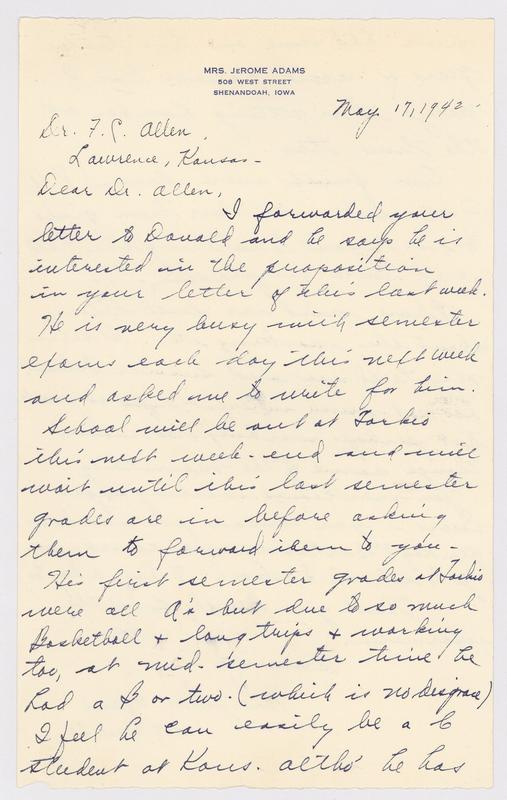 MRS. JEROME ADAMS
508 WEST STREET
SHENANDOAH, IOWA
May 17, 1942.
Dr. F. C. Allen,
Lawrence, Kansas -
Dear Dr. Allen,
I forwarded your
letter to Donald and he says he is
interested in the proposition
in your letter of this last week.
He is very busy with semester
exams each day this next week
and asked me to write for him.
School will be out at Tarkio
this next week-end and will
wait until this last semester
grades are in before asking
them to forward them to you -
His first semester grades at Tarkio
were all A's but due to so much
Basketball + long trips + working
too, at mid-semester time he
had a B or two. (which is no disgrace)
I feel he can easily be a C
student at Kans. altho' he has